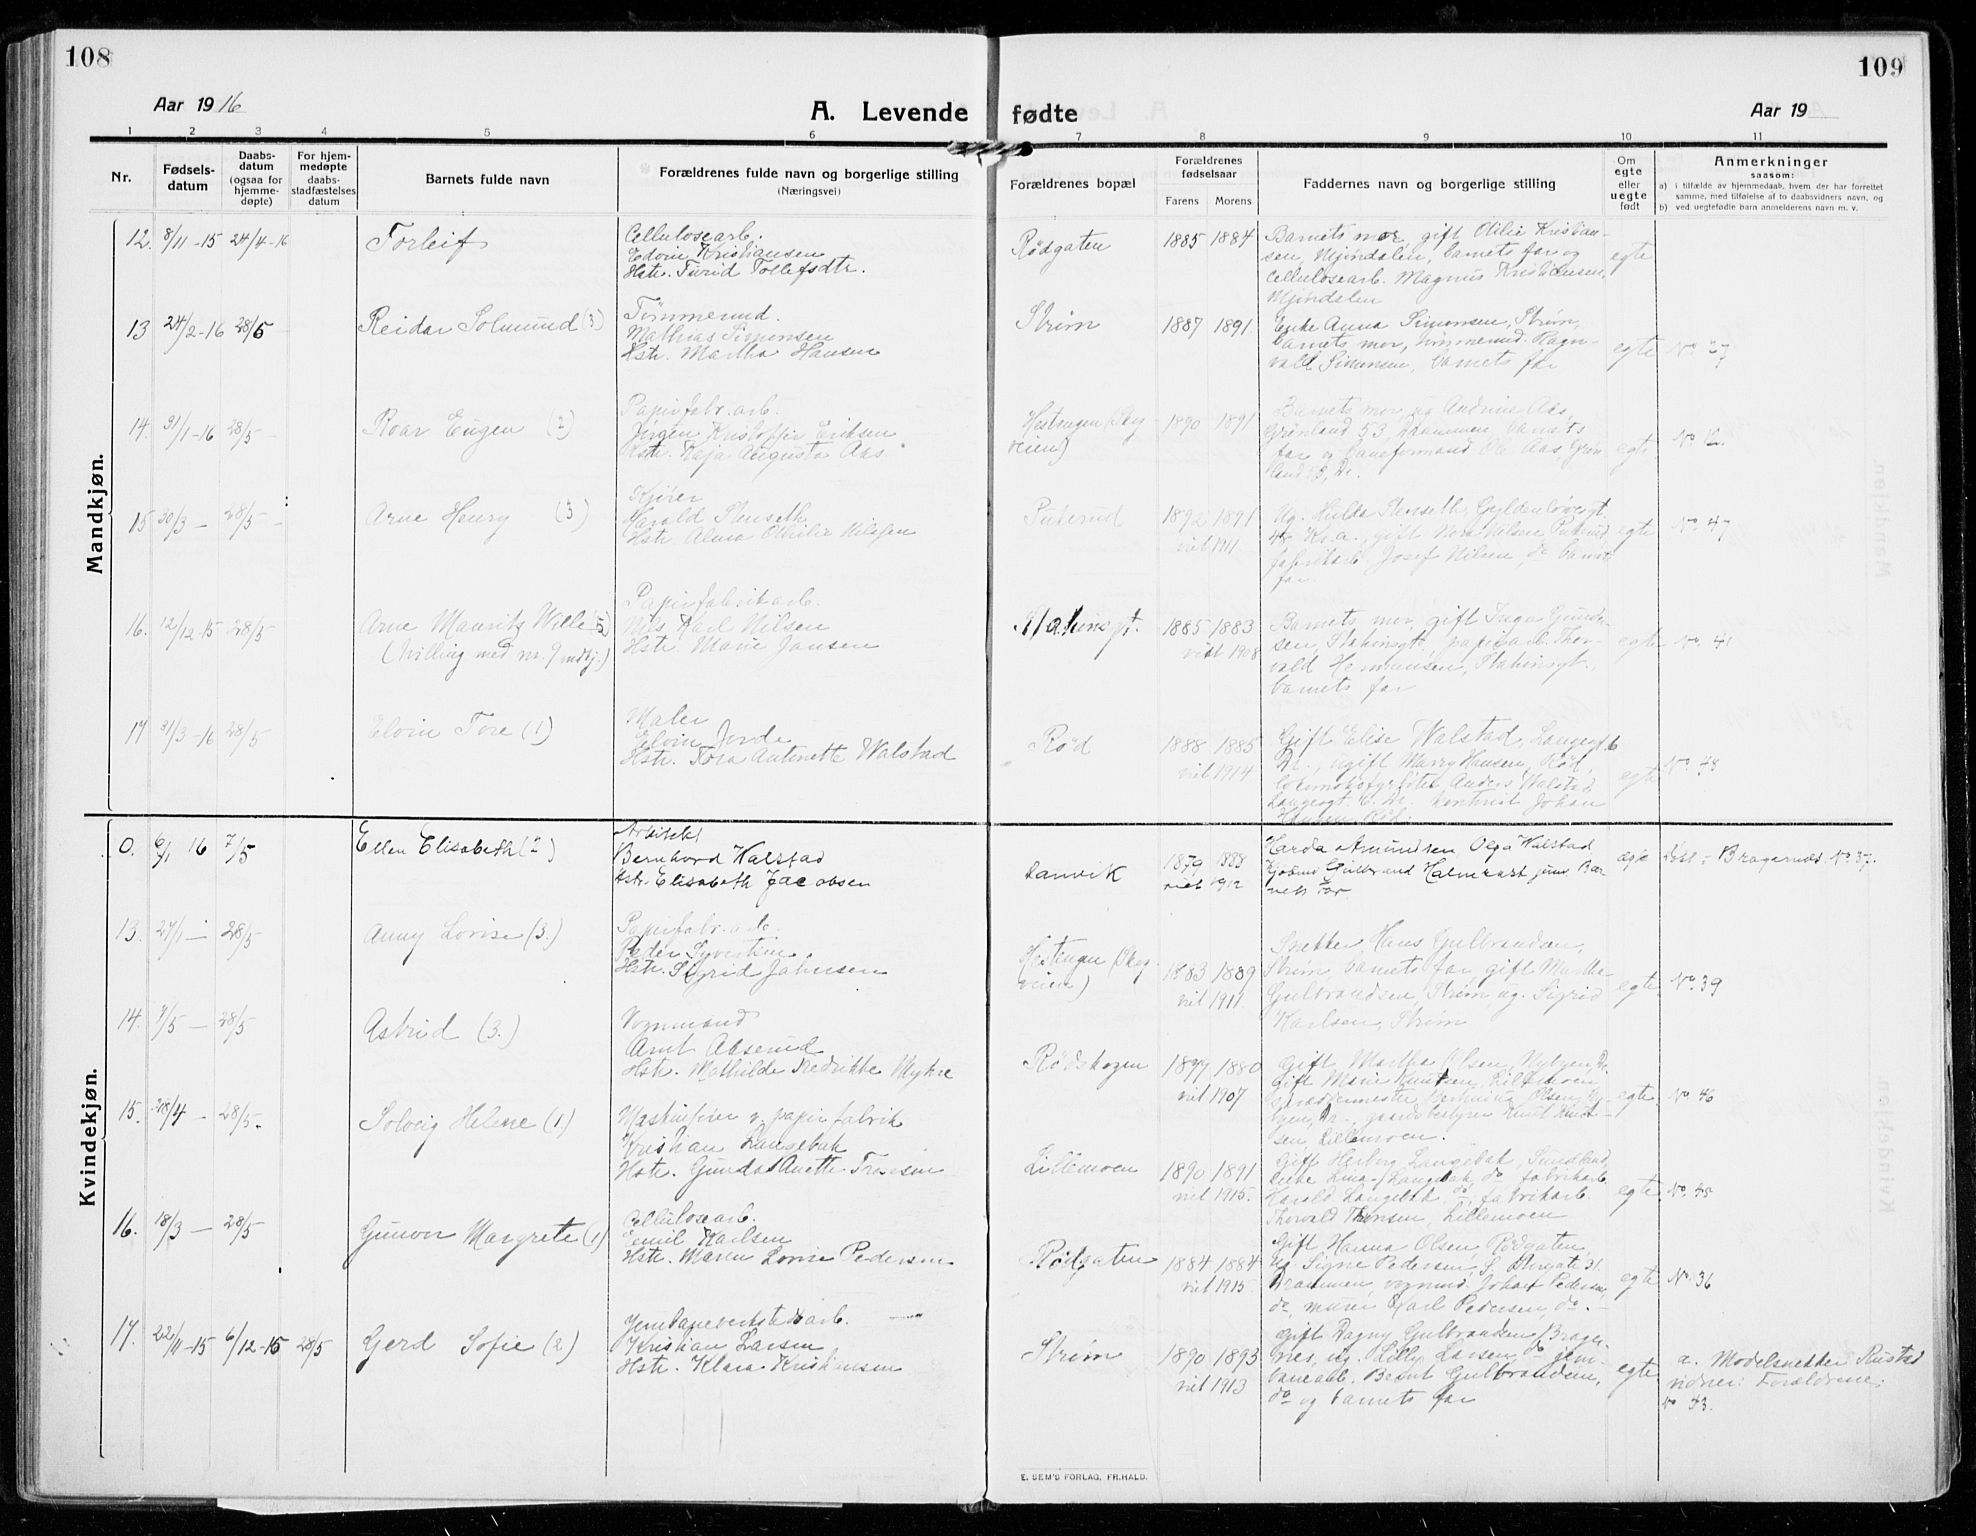 108
109
Aar 1916
A. Levende fødte
Aar 19
1 2 3 4 5 6 7 8 9 10 11
Nr.
Fødsels-
datum
Daabs-
datum
(ogsaa for
hjemme-
døpte)
For hjem-
medøpte
daabs-
stadfæstelses
datum
Barnets fulde navn
Forældrenes fulde navn og borgerlige stilling
(Næringsvei)
Forældrenes bopæl
Forældrenes
fødselsaar
Farens Morens
Faddernes navn og borgerlige stilling
Om
egte
eller
uegte
født
Anmerkninger
saasom:
a) i tilfælde av hjemmedaab, hvem der har forrettet
samme, med tilføielse av to daabsvidners navn, og
b) ved uegtefødte barn anmelderens navn m. v.
Mandkjøn.
12. 8/11-15 24/4-16
Torleif
Cellulosearb.
Edvin Kristiansen
Hstr. Turid Tollefsdtr.
Rødgaten
1885 1884
Barnets mor, gift Otilie Kristian-
sen, Mjøndalen, barnets far og
cellulosearb. Magnus Kristiansen,
Mjøndalen
egte
13 24/2-16 28/5
Reidar Solmund (3)
Tømmermd.
Mathias Simensen
Hstr. Martha Hansen
Strøm
1887 1891
Enke Anna Simensen, Strøm,
barnets mor, tømmermd. Ragn-
vald Simensen, barnets far
egte
No 27
14. 31/1-16 28/5
Roar Eugen (2)
Papirfabr.arb.
Jørgen Kristoffer Eriksen
Hstr. Kaja Augusta Aas
Hestengen (Skog-
veien)
1890 1891
Barnets mor, ug Andrine Aas,
Grønland 53, Drammen, barnets
far og baneformand Ole Aas Grøn-
land 53, Dr.
egte
No 12.
15 30/3 — 28/5 -
Arne Henry (3)
Kjører
Harald Stenseth
Hstr. Alma Othilie Nilssen
Puterud
1892 1891
viet 1911
Ug. Hilda Stenseth, Gyldenløvesgt.
48 Ks.a., gift Nora Nilsen Puterud,
fabrikarb. Josef Nilsen, do barnets
far.
egte
No 47
16. 12/12-15 28/5
Arne Mauritz Wille (5)
(tvilling med nr. 9 mdkj.)
Papirfabrikarb.
Nils Karl Nilsen
Hstr. Marie Jansen
Stakinsgt.
1885 1883
viet 1908
Barnets mor, gift Inga Gunder-
sen, Stakinsgt., papirarb. Thor-
vald Hermansen, Stakinsgt.,
barnets far
egte
No. 41
17 31/3-16 28/5
Elvin Tore (1)
Maler
Elvin Jorde
Hstr. Tora Antonette Walstad
Rød
1888 1885
viet 1914
Gift Elise Walstad, Langesgt. 6
Dr., ugift Marry Hansen, Rød,
lokomotivfyrbøter Anders Walstad,
Langesgt. 6. Dr. kontrist Johan
Hansen, Rød.
egte
No. 48
Kvindekjøn.
0. 6/1 16 7/5
Ellen Elisabeth (2)
Arkitekt
Bernhard Halstad
Hstr. Elisabeth Jacobsen
Danvik
1879 1888
viet 1912
Harda Amundsen Olga Halstad
Kjøbmd Gulbrand Halmrast jun. Bar-
nets Far
egte
født i Bragernes. No 37.
13. 27/1 — 28/5
Anny Lovise (3.)
Papirfabr.arb.
Peder Syvertsen
Hstr. Sigrid Johnsen
Hestengen (Skog-
veien)
1883 1889
viet 1911
Snekker Hans Gulbrandsen,
Strøm, barnets far, gift Marthe
Gulbrandsen, Strøm ug. Sigrid
Karlsen, Strøm
egte
No. 39
14. 7/5 — 28/5
Astrid (3.)
Vognmand
Arnt Abserud
Hstr. Mathilde Fredrikke Myhre
Rødskogen
1877 1880
viet 1907
Gift Martha Olsen, Nybyen, Dr.
Gift Marie Knutsen, Lillemoen
Olsen, Ny-
byen, Dr., gaardsbestyrer Knut Knut-
sen, Lillemoen.
egte.
No. 46
15. 28/4 — 28/5 -
Solveig Helene (1.)
Maskinfører v. papirfabrik
Kristian Langebak
Hstr. Gunda Anette Tronsen
Lillemoen
1890 1891
viet 1915.
Gift Herborg Langebak, Sundland,
enke Lina Langebak do fabrikarb.
Harald Langebak, do, fabrikarb.
Thorvald Thronsen, Lillemoen
egte
No. 45
16. 18/3 — 28/5
Gunvor Margrete (1)
Cellulosearb.
Emil Karlsen
Hstr. Maren Lovise Pedersen
Rødgaten
1884 1884
viet 1915.
Gift Hanna Olsen, Rødgaten,
Ug Signe Pedersen, 31.
Drammen, vognmd. Johan Pedersen,
do, murer Karl Pedersen, do. -
egte
No. 36
17. 22/11-15 6/12-15 28/5
Gerd Sofie (2)
Jernbaneverkstedarb.
Kristian Larsen
Hstr. Klara Kristiansen
Strøm
1890 1893
viet 1913
Gift Dagny Gulbrandsen Brager-
nes, ug. Lilly Larsen do jern-
banearb. Bernt Gulbrandsen,
do og barnets far
egte
a. Modelsnekker Rustad
vidner: Forældrene.
No 43.
E. SEM'S FORLAG, FR.HALD.